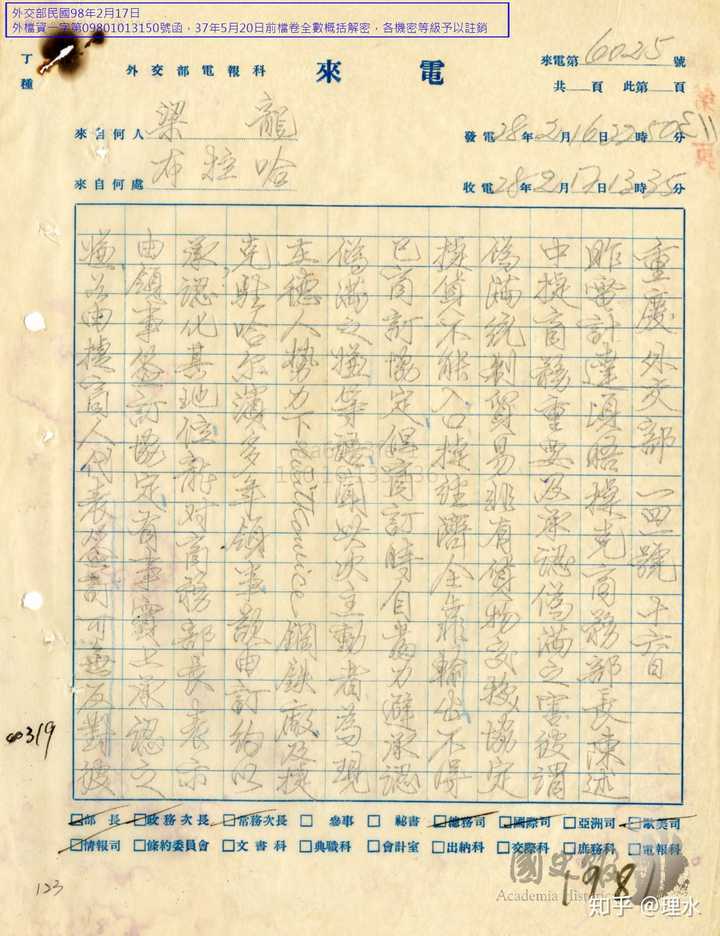 外交部民國98年2月17日
外檔資一字第09801013150號函,37年5月20日前檔卷全數概括解密,各機密等級予以註銷
丁種
外交部電報科 來電
來電第6025號
共 頁 此第 頁
來自何人 梁龍
發電28年2月16日22時50分
來自何處 布拉哈
收電28年2月17日13時35分
重慶外交部 號 十六日
昨電計達頃晤捷克商務部長陳述
中捷商務重要及承認偽滿之害彼謂
偽滿統制貿易非有貨物交換協定
捷貨不能入口捷經濟全靠輸出不得
已商訂協定 商訂時自當力避承認
偽滿之嫌等語聞此次主動者為現
在德人勢力下Witkowice鋼鉄廠及捷
克駐哈尔濱多年領事欲由訂約以
承認化其地位龍對商務部長表示
由領事簽訂協定有事實上承認之
嫌若由捷商人代表簽訂可無反對彼
部長 政務次長 常務次長 參事 祕書 總務司 國際司 亞洲司 歐美司
情報司 條約委員會 文書科 典職科 會計室 出納科 交際科 庶務科 電報科
國史館
Academia Historica
198
123
知乎 @理水